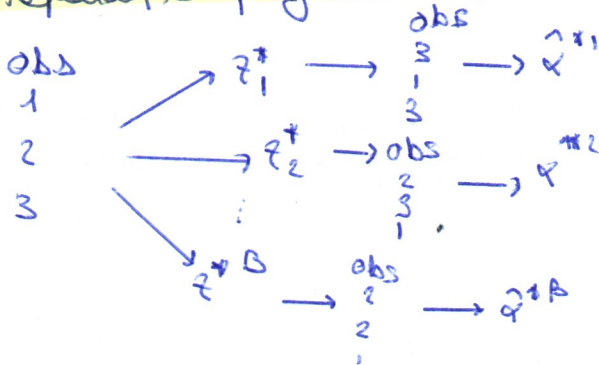 obs
obs
1
2
3
z*1 → obs
3
1
3
→ α̂*1
z*2 → obs
2
3
1
→ α*2
⋮
z*B → obs
2
2
→ α̂*B